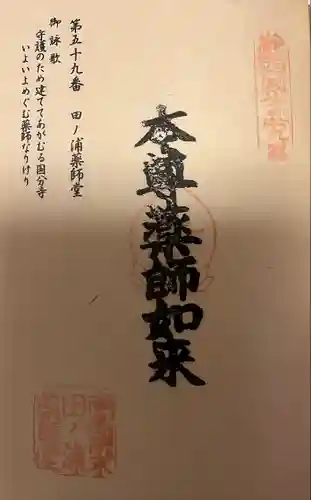 第五十九番　田ノ浦薬師堂
御詠歌
守護のため建ててあがむる国分寺
いよいよめぐむ薬師なりけり
本尊薬師如来
田ノ浦